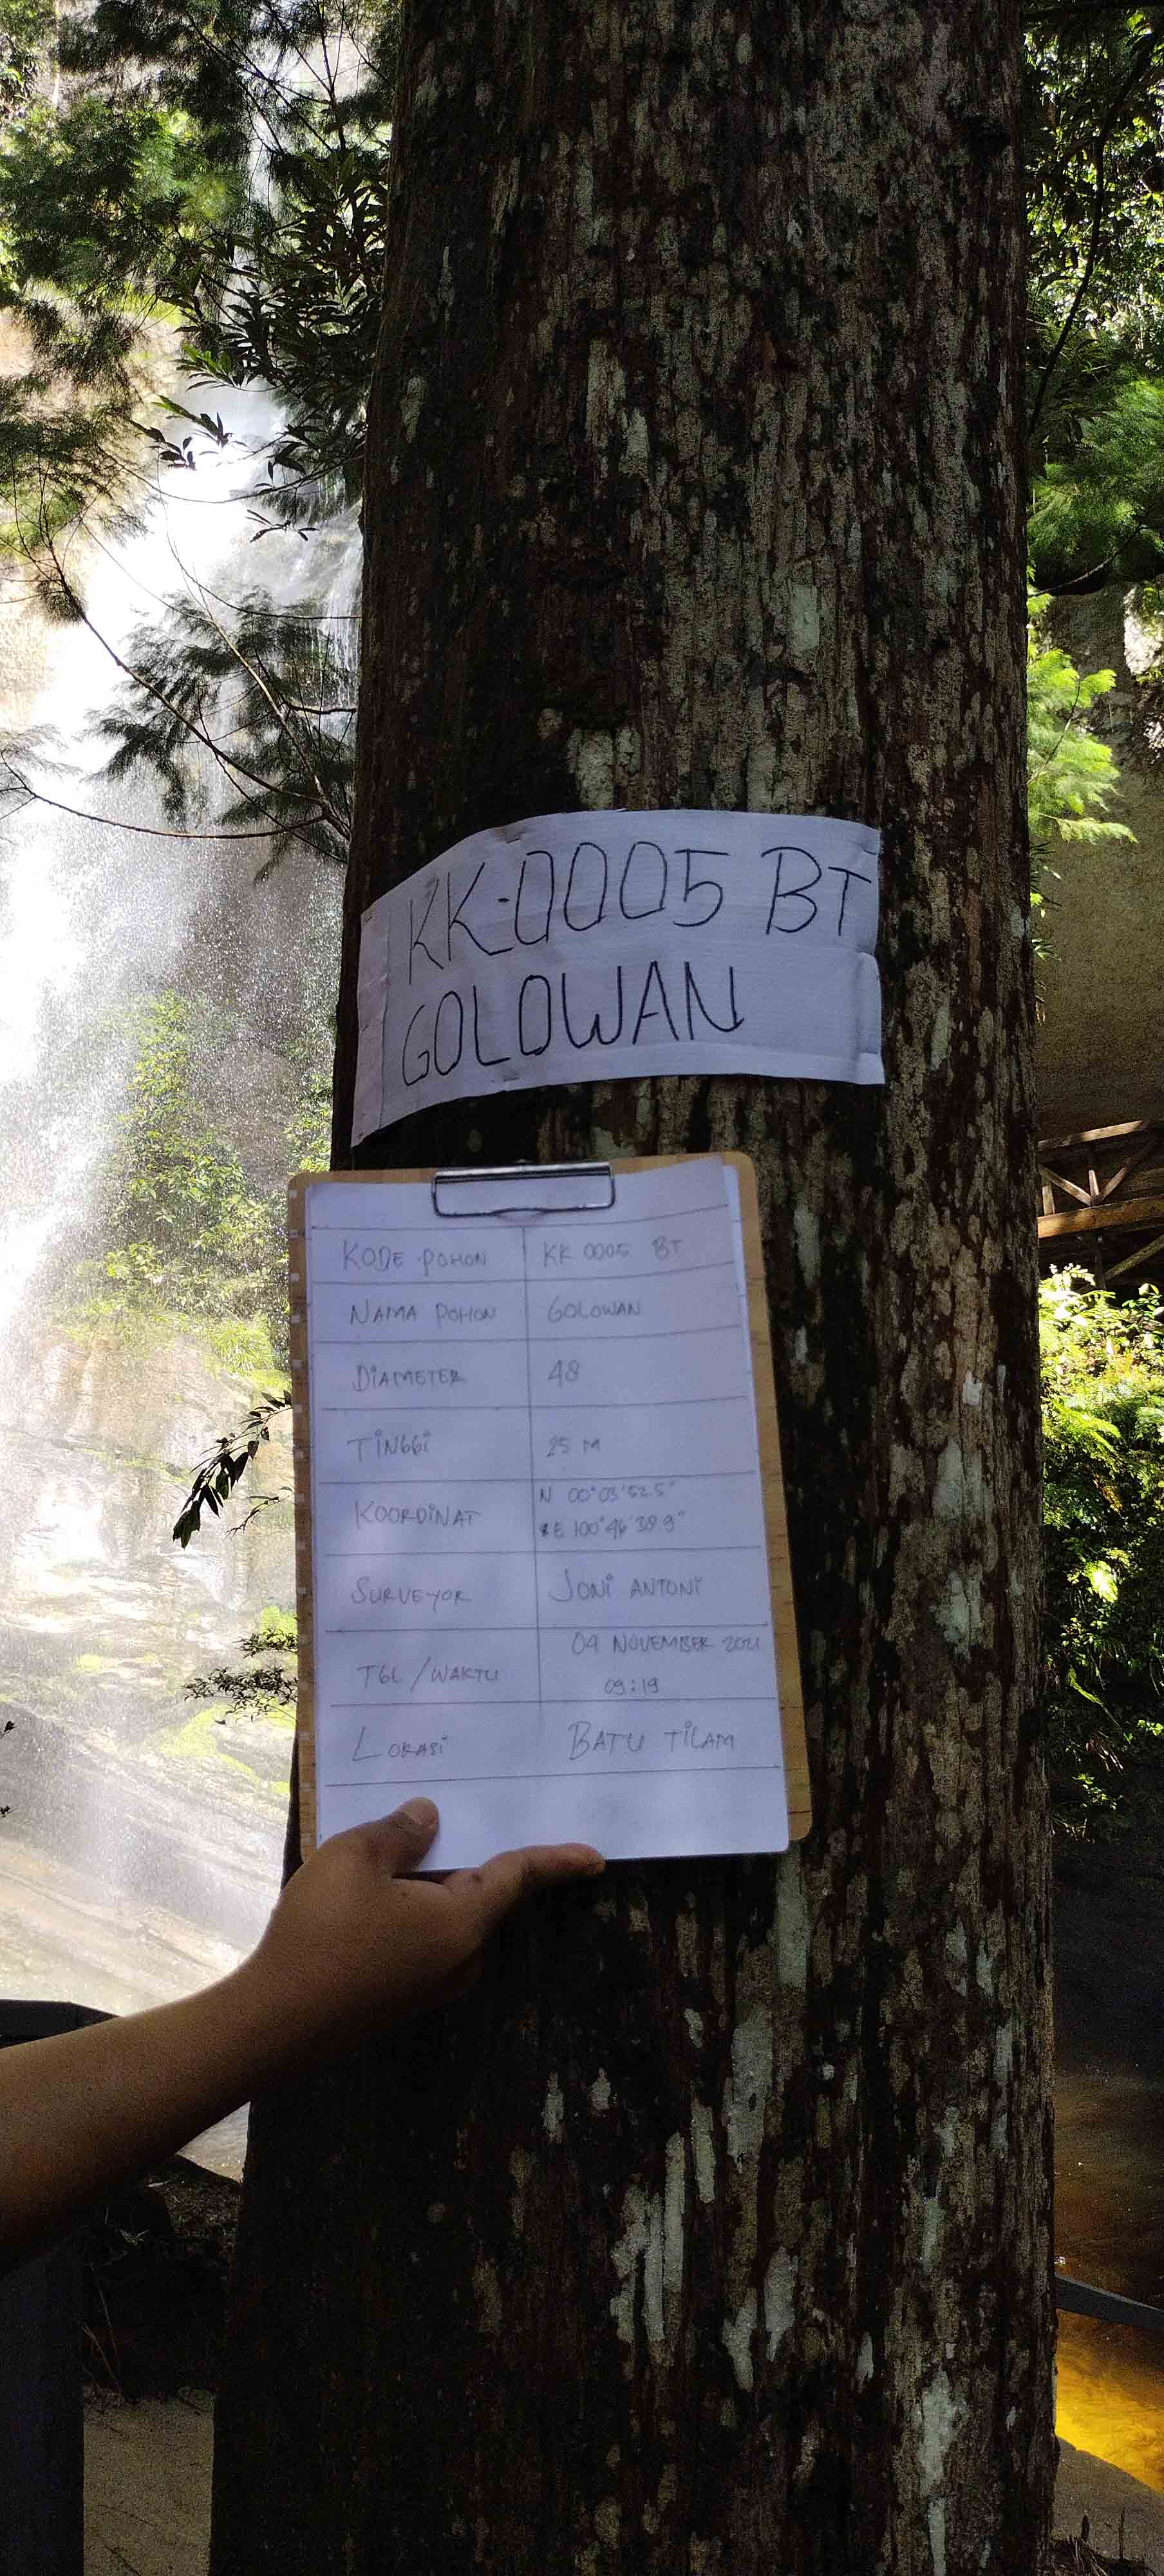 KK-0005 BT
GOLOWAN
KODE POHON KK 0005 BT
NAMA POHON GOLOWAN
DIAMETER 48
TINGGI 25 M
KOORDINAT N 00°03'52.5"
E 100°46'38.9"
SURVEYOR JONI ANTONI
TGL / WAKTU 04 NOVEMBER 2021
09:19
LOKASI BATU TILAM